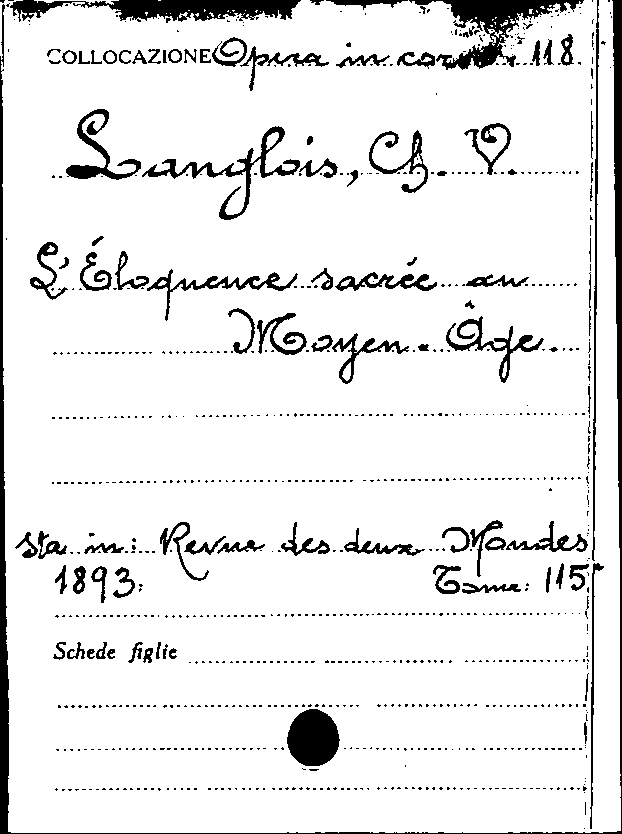 COLLOCAZIONE Opera in corso 118
Langlois, Ch. V.
L'Éloquence sacrée au
Moyen-Âge.
Sta in: Revue des deux Mondes
1893. Tome: 115°
Schede figlie